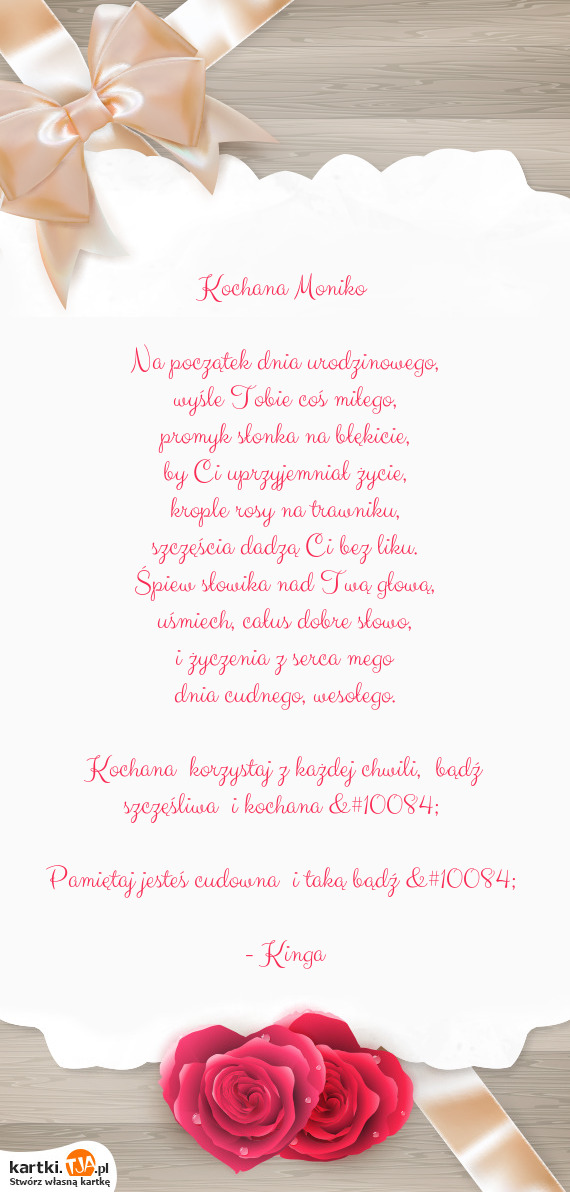 Kochana Moniko
Na początek dnia urodzinowego,
wyśle Tobie coś miłego,
promyk słonka na błękicie,
by Ci uprzyjemniał życie,
krople rosy na trawniku,
szczęścia dadzą Ci bez liku.
Śpiew słowika nad Twą głową,
uśmiech, całus dobre słowo,
i życzenia z serca mego
dnia cudnego, wesołego.
Kochana korzystaj z każdej chwili, bądź
szczęśliwa i kochana &#10084;
Pamiętaj jesteś cudowna i taką bądź &#10084;
- Kinga
kartki.TJA.pl
Stwórz własną kartkę